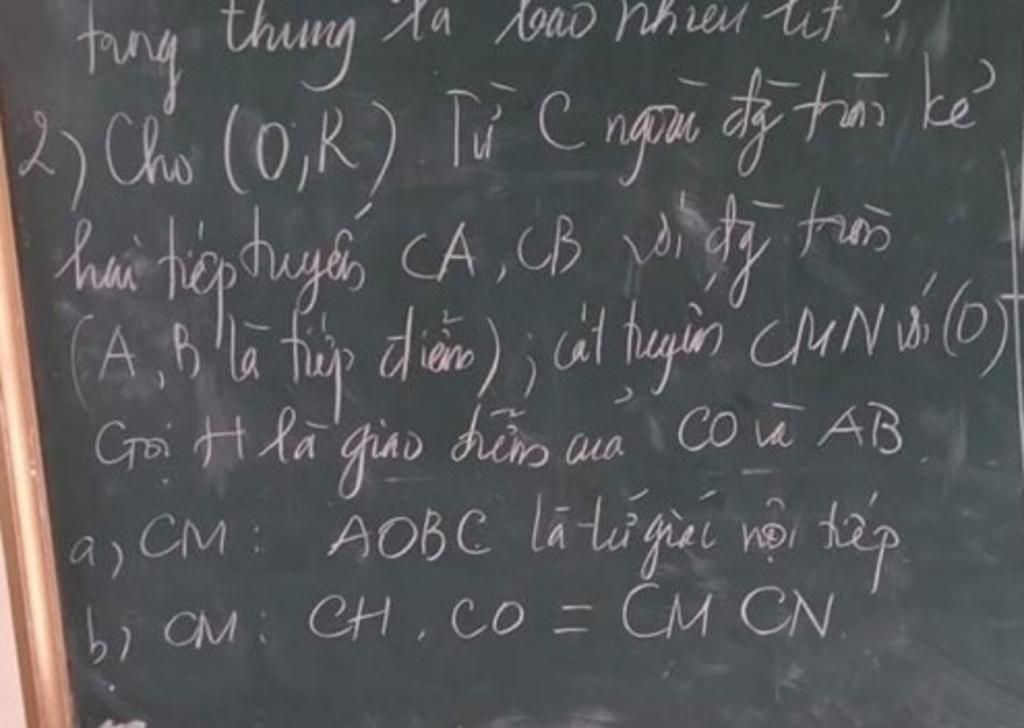 từng thùng là bao nhiêu lít?
2) Cho (O;R) Từ C ngoài đg tròn kẻ
hai tiếp tuyến CA, CB với đg tròn
(A, B là tiếp điểm); cát tuyến CMN với (O)
Gọi H là giao điểm của CO và AB.
a) CM: AOBC là tứ giác nội tiếp
b) CM: CH. CO = CM CN.